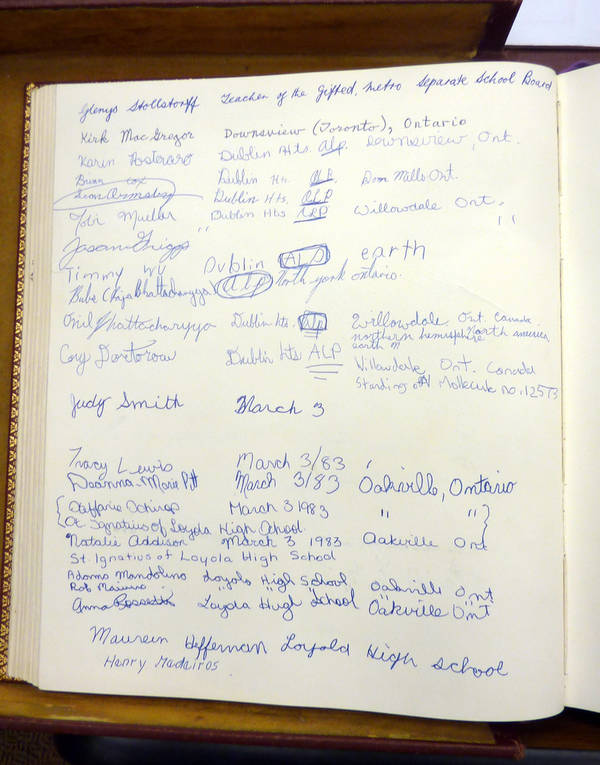 Glenys Stollstorff Teacher of the Gifted, Metro Separate School Board
Kirk MacGregor Downsview (Toronto), Ontario
Karin Dublin Hts. Alp. Downsview, Ont.
Brian Cox Dublin Hts. ALP Don Mills Ont.
Armstrong Dublin Hts. ALP
Tobi Muller Dublin Hts ALP Willowdale Ont.
Jason Griggs " " "
Timmy Wu Dublin ALP earth
Bhattacharyya alp North york ontario.
Onil Bhattacharyya Dublin hts. Alp Willowdale. Ont. Canada
northern hemisphere North america
earth
Cory Dublin hts ALP Willowdale Ont. Canada
Standing Molecule no. 125
Judy Smith March 3
Tracy Lewis March 3/83
Deanna-Marie Pitt March 3/83 Oakville, Ontario
{ March 3 1983 " " }
St. Ignatius of Loyola High School
Natalie Addison March 3 1983 Oakville Ont
St. Ignatius of Loyola High School
Mandolino Loyola High School Oakville Ont
Rob
Anna Loyola High School Oakville Ont
Maureen Heffernan Loyola High School
Henry Madeiros